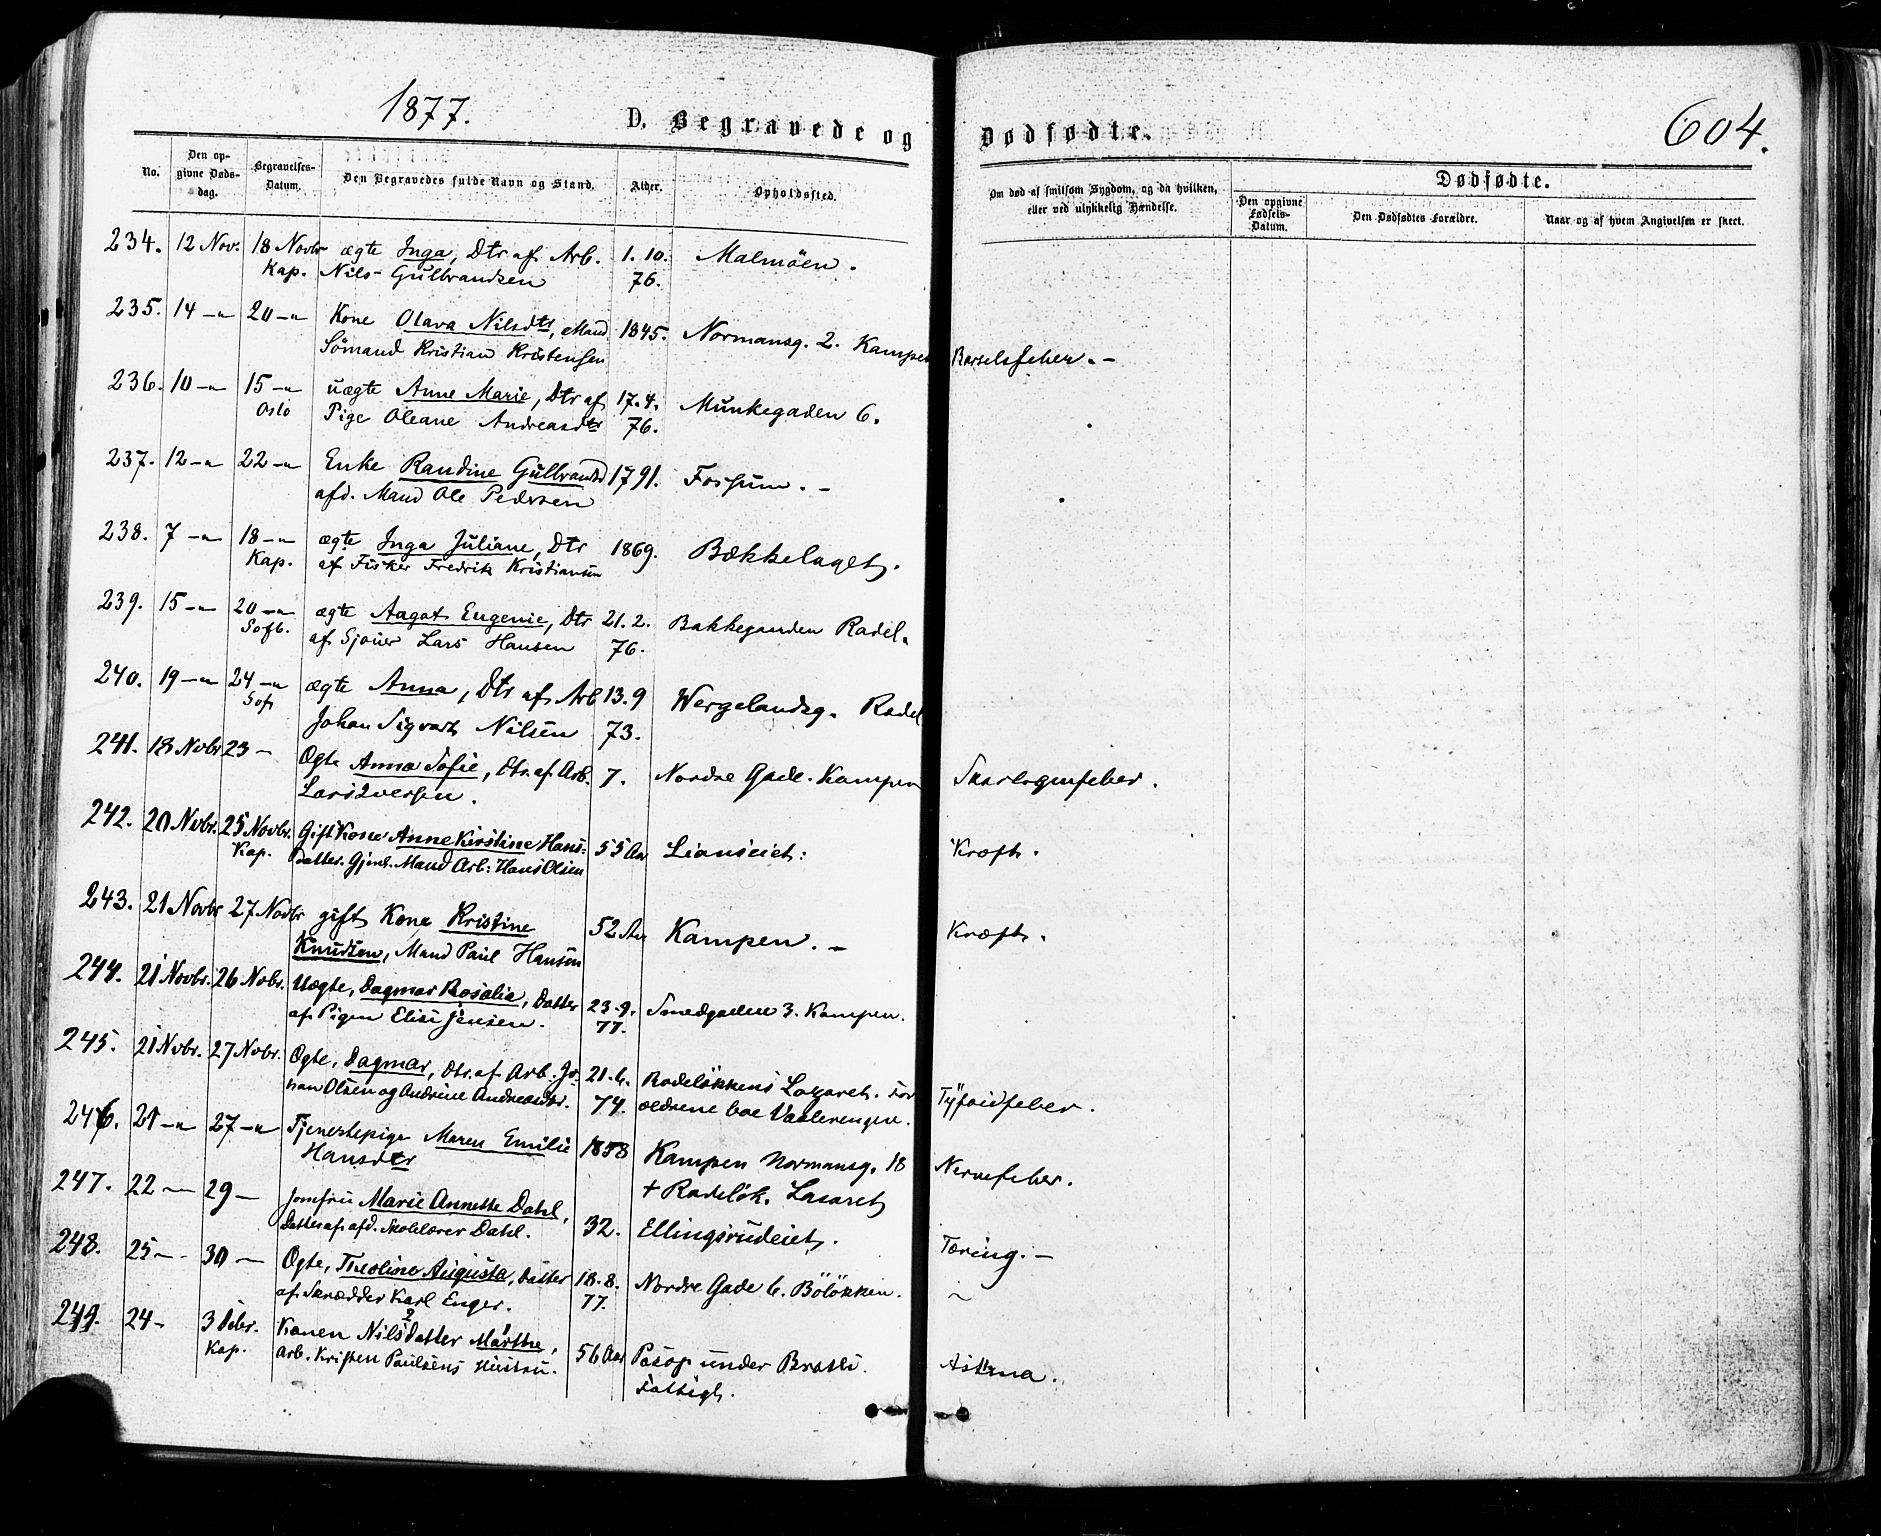 1877.
D. Begravede og Dødfødte.
604.
No.
Den op-
givne Døds-
dag.
Begravelses-
Datum.
Den Begravedes fulde Navn og Stand.
Alder.
Opholdssted.
Om død af smitsom Sygdom, og da hvilken,
eller ved ulykkelig Hændelse.
Dødfødte.
Den opgivne
Fødsels-
Datum.
Den Dødfødtes Forældre.
Naar og af hvem Angivelsen er skeet.
234. 12 Nov. 18 Novbr ægte Inga, Dtr af Arb. 1. 10. Malmøen.
Kap. Nils Gulbrandsen 76.
235. 14 -"- 20 -"- Kone Olava Nilsdtr, Mand 1845. Normansg. 2. Kampen Barselsfeber. -
Sømand Kristian Kristensen
236. 10 -"- 15 -"- uægte Anne Marie, Dtr af 17. 4. Munkegaden 6.
Oslo Pige Oleane Andreasdtr 76.
237. 12 -"- 22 -"- Enke Randine Gulbrandsd 1791. Fossum. -
afd. Mand Ole Pedersen
238. 7 -"- 18 -"- ægte Inga Juliane, Dtr 1869. Bækkelaget.
Kap. af Fisker Fredrik Kristiansen
239. 15 -"- 20 -"- ægte Aagot Eugenie, Dtr 21. 2. Bakkegaden Rodel.
Sofb. af Sjouer Lars Hansen 76.
240. 19 -"- 24 -"- ægte Anna, Dtr af Arb 13. 9 Wergelandsg. Rodel
Sof Johan Sigvart Nilsen 73.
241. 18 Novbr 23 - Ægte Anna Sofie, Dtr. af Arb. 7. Nordre Gade. Kampen Skarlagensfeber.
Lars Iversen.
242. 20 Novbr. 25 Novbr. Gift Kone Anne Kirstine Hans- 55 Aar Lianseiet: Kræft.
Kap. datter. Gjenl. Mand Arb: Hans Olsen
243. 21 Novbr 27 Novbr gift Kone Kristine 52 Aar Kampen. - Kræft.
Knudsen, Mand Paul Hansen
244. 21 Novbr. 26 Nobr. Uægte, Dagmar Rosalia, Datter 23. 9. Smedgaden 3. Kampen.
af Pigen Elise Jensen. 77.
245. 21 Nvbr. 27 Nvbr. Ægte, Dagmar, Dtr. af Arb. Jo- 21. 6. Rodeløkkens Lazaret. For Tÿfoidfeber.
han Olsen og Andrine Andreasdtr. 74. ældrene boe Vaalerengen.
246. 21 -"- 27 -"- Tjenestepige Maren Emilie 1858 Kampen Normansg. 18 Nervefeber.
Hansdtr + Rodeløk. Lasaret
247. 22 - 29 - Jomfru Marie Annette Dahl, 32. Ellingsrudeiet. Tæring. -
Datter af afd. Skolelærer Dahl.
248. 25 - 30 - Ægte, Theoline Augusta, Datter 18. 8. Nordre Gade 6. Böløkken. ~
af Skrædder Karl Enger. 77.
249. 24 - 3 Debr. Konen Nilsdatter Marthe, 56 Aar Posop under Bratli. Asthma.
Kap. Arb. Kristen Paulsens Hustru. Fattigl.